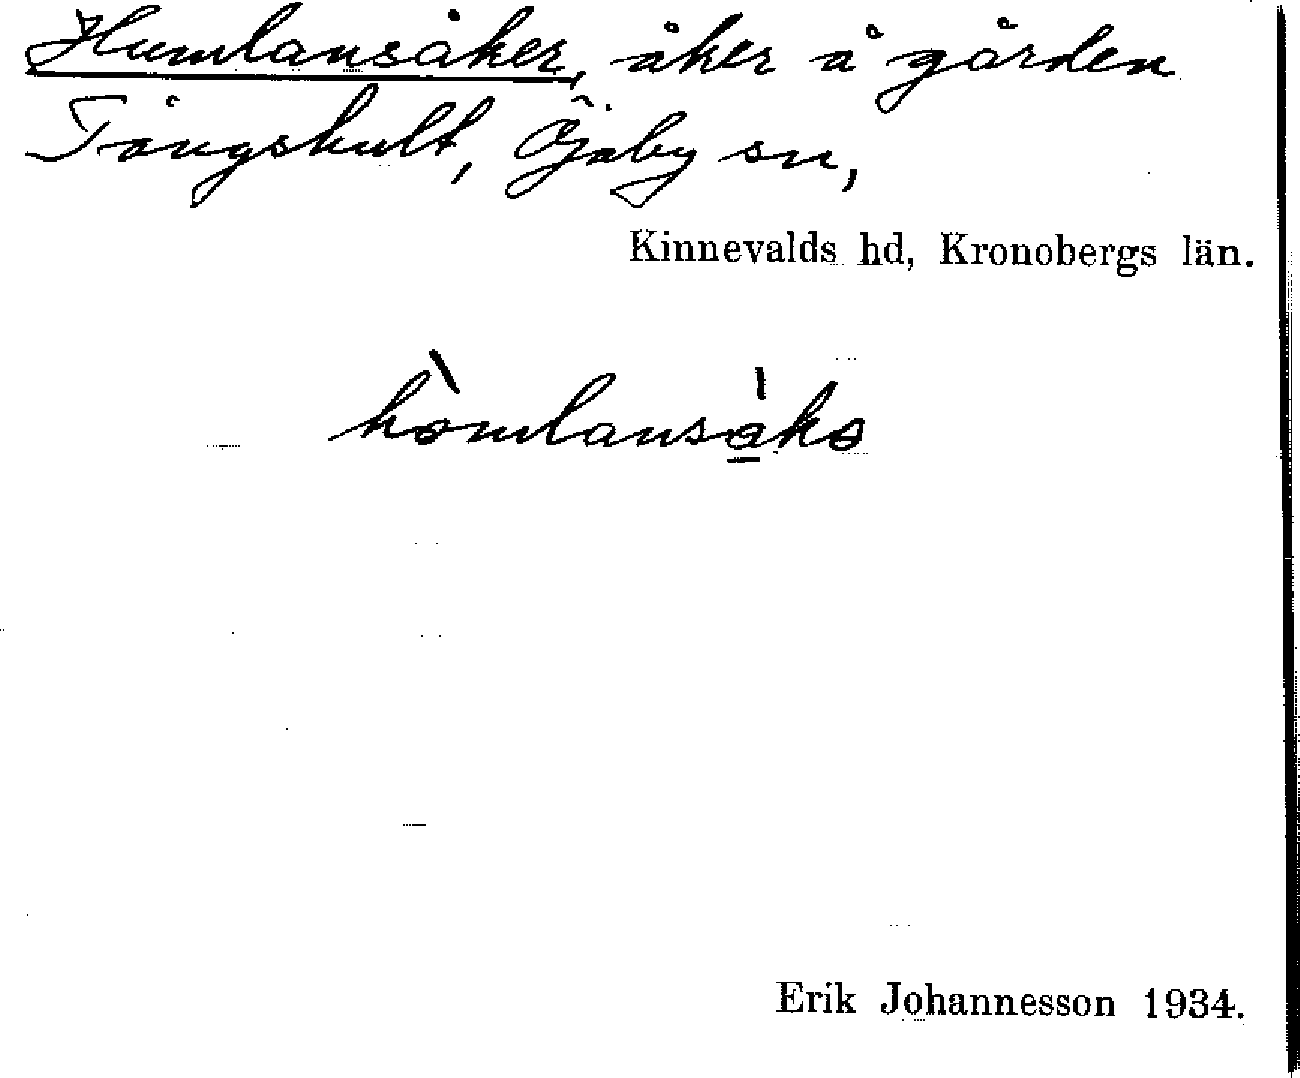 Humlansåker, åker å gården
Tångshult, Öjaby sn,
Kinnevalds hd, Kronobergs län.
hòmlansa̲̍kə
Erik Johannesson 1934.